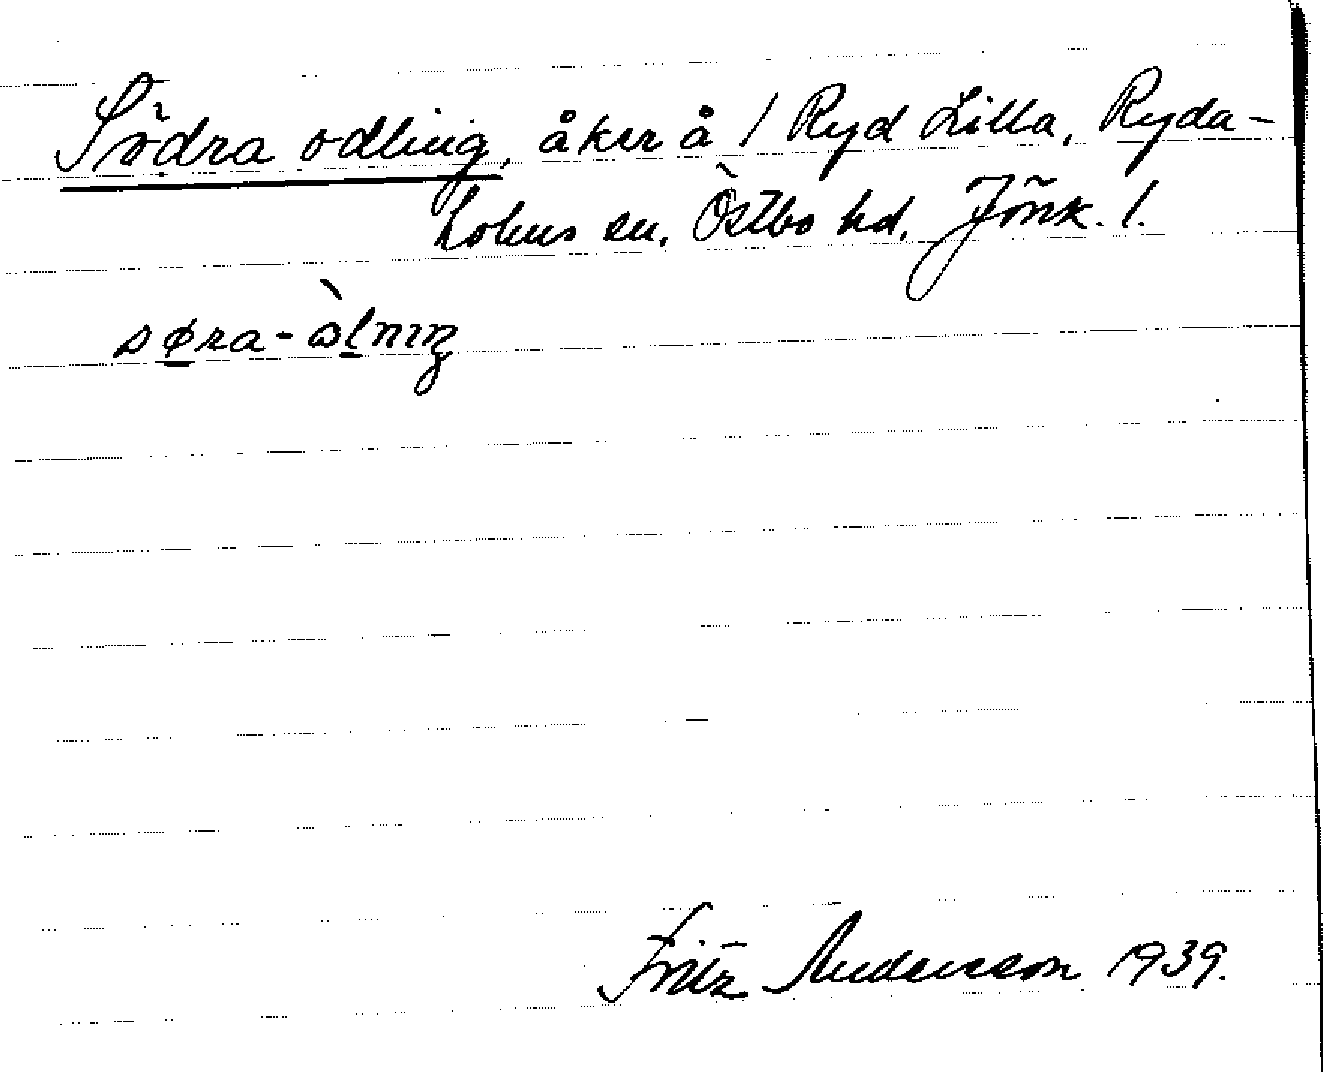 Södra odling, åker å / Ryd Lilla, Ryda-
holms sn, Östbo hd, Jönk. l.
søra-ɷ̀lnıŋ
Fritz Andersson 1939.